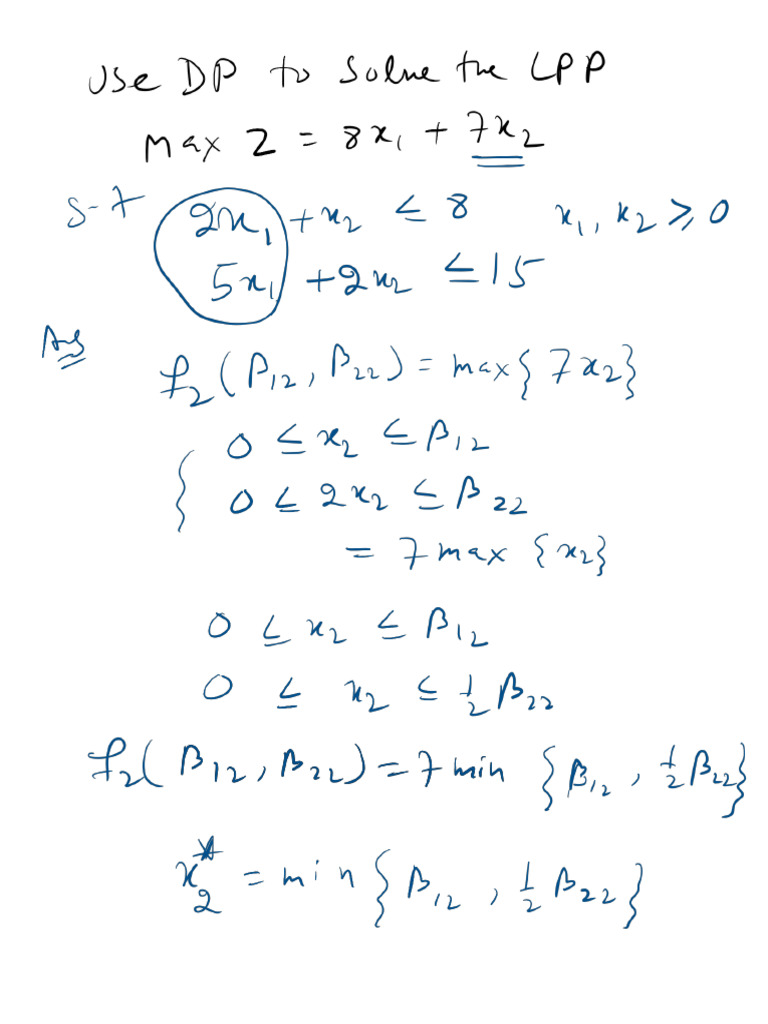 Use DP to Solve the LPP
Max Z = 8x₁ + 7x₂
S-t 2x₁ + x₂ ≤ 8 x₁, x₂ ≥ 0
5x₁ + 2x₂ ≤ 15
Ans
f₂(β₁₂, β₂₂) = max{7x₂}
0 ≤ x₂ ≤ β₁₂
0 ≤ 2x₂ ≤ β₂₂
= 7 max {x₂}
0 ≤ x₂ ≤ β₁₂
0 ≤ x₂ ≤ ½ β₂₂
f₂(β₁₂, β₂₂) = 7 min {β₁₂, ½ β₂₂}
x₂* = min {β₁₂, ½ β₂₂}